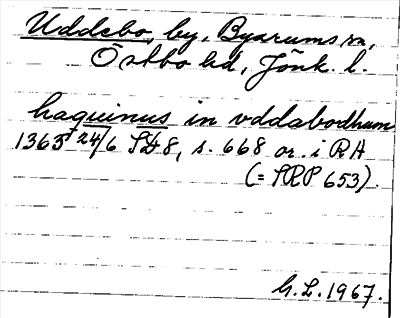 Uddebo, by, Byarums sn,
Östbo hd, Jönk. l.
haquinus in vddabodhum
1365 24/6 SD 8, s. 668 or. i RA
(= SRP 653).
G. L. 1967.